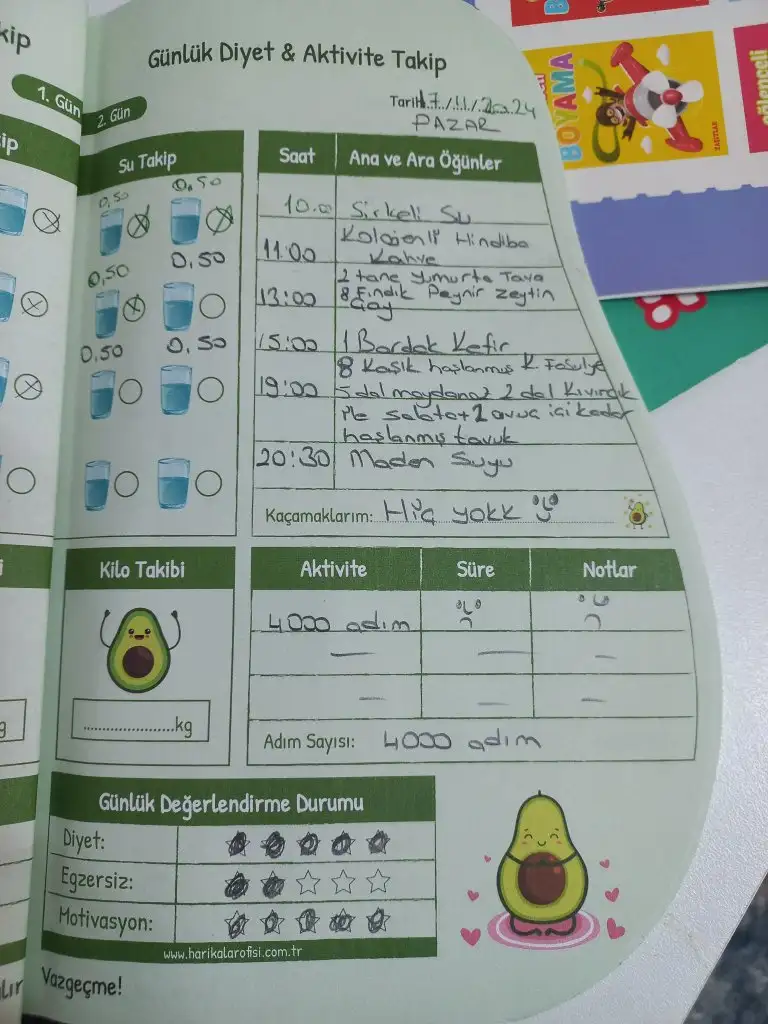 kip
1. Gün
ip
Günlük Diyet & Aktivite Takip
2. Gün
Tarih 17./11./2024
PAZAR
Su Takip
0,50 0,50
0,50 0,50
0,50 0,50
Saat Ana ve Ara Öğünler
10.00 Sirkeli Su
11:00 Kolojenli Hindiba
Kahve
13:00 2 tane yumurta Tava
8 Fındık Peynir zeytin
Çay
15:00 1 Bardak Kefir
19:00 8 Kaşık haşlanmış K. Fasulye
5 dal maydanoz 2 dal Kıvırcık
ile salata + 1 avuç içi kadar
haşlanmış tavuk
20:30 Maden Suyu
Kaçamaklarım: Hiç yokk
i
Kilo Takibi
....................kg
g
Aktivite Süre Notlar
4000 adım
Adım Sayısı: 4000 adım
Günlük Değerlendirme Durumu
Diyet:
Egzersiz:
Motivasyon:
www.harikalarofisi.com.tr
lır
Vazgeçme!
BOYAMA
TAŞITLAR
eğlenceli